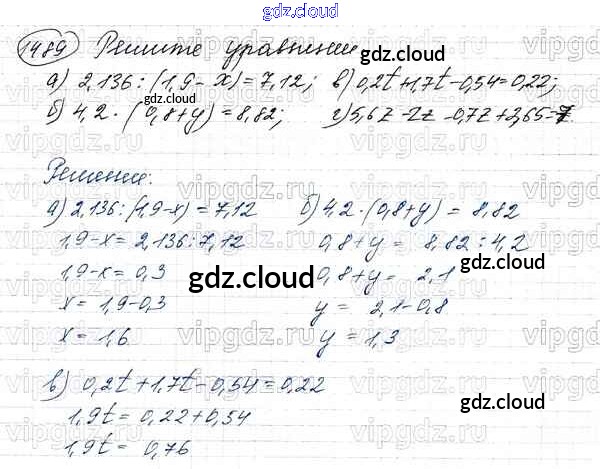 gdz.cloud
1489 Решите уравнение
а) 2,136 : (1,9 - x) = 7,12; в) 0,2t + 1,7t - 0,54 = 0,22;
б) 4,2 · (0,8 + y) = 8,82; г) 5,6z - 2z - 0,7z + 2,65 = 7
Решение:
а) 2,136 : (1,9 - x) = 7,12 б) 4,2 · (0,8 + y) = 8,82
1,9 - x = 2,136 : 7,12 0,8 + y = 8,82 : 4,2
1,9 - x = 0,3 0,8 + y = 2,1
x = 1,9 - 0,3 y = 2,1 - 0,8
x = 1,6 y = 1,3
в) 0,2t + 1,7t - 0,54 = 0,22
1,9t = 0,22 + 0,54
1,9t = 0,76
gdz.cloud
gdz.cloud
gdz.cloud
gdz.cloud
gdz.cloud
vipgdz.ru